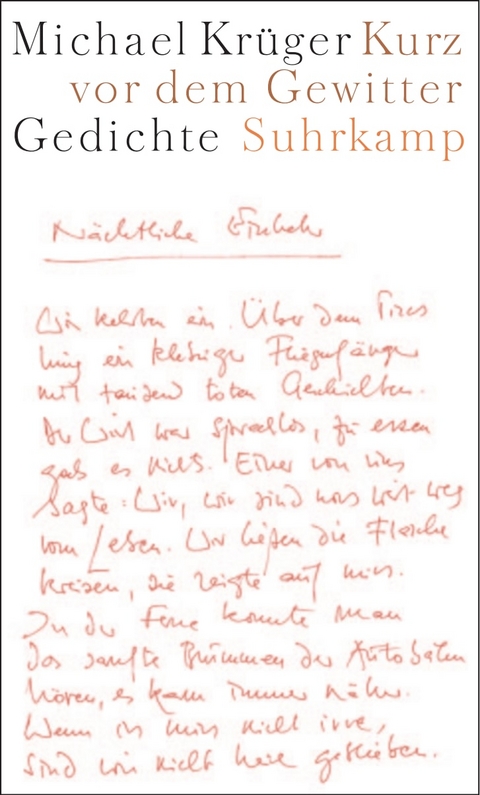 Michael Krüger Kurz
vor dem Gewitter
Gedichte Suhrkamp
Nächtliche Einkehr
Wir kehrten ein. Über dem Tresen
hing ein klebriger Fliegenfänger
mit tausend toten Geschichten.
Der Wirt war sprachlos, zu essen
gab es nichts. Einer von uns
sagte: Wir, wir sind noch weit weg
vom Leben. Wir ließen die Flasche
kreisen, sie zeigte auf mich.
In der Ferne konnte man
das sanfte Brummen der Autobahn
hören, es kam immer näher.
Wenn ich mich nicht irre,
sind wir nicht geblieben.